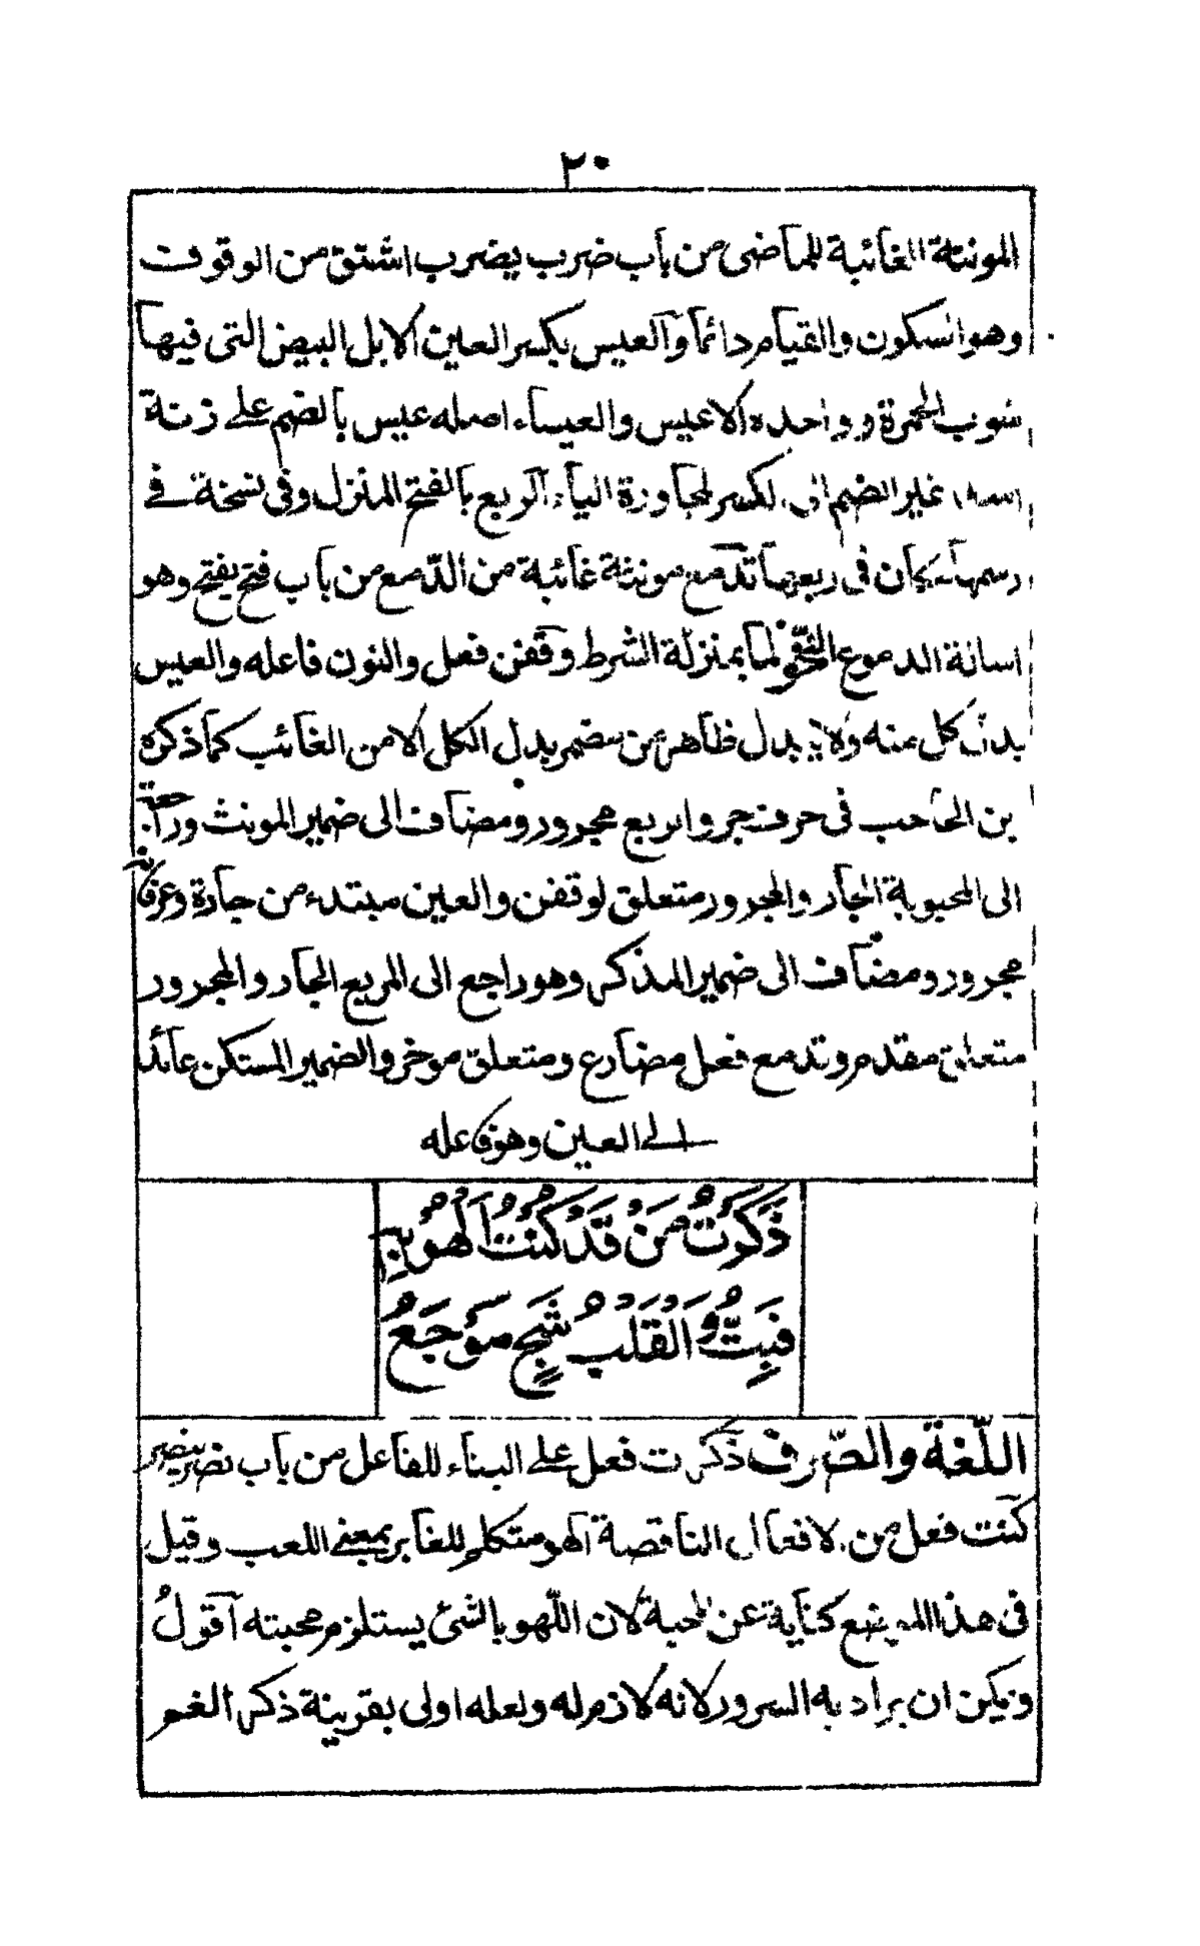 ٢٠
المونثة الغائبة للماضى من باب ضرب يضرب اشتق من الوقوف
وهو السكون والقيام دائما والعيس بكسر العين الابل البيض التى فيها
شوب الحمرة وواحده الاعيس والعيساء اصله عيس بالضم على زنة
غير الضم الى الكسر لمجاورة الياء الربع بالفتح المنزل وفى نسخة فى
رسمها كان فى ربعها تدمع مونثة غائبة من الدمع من باب فتح يفتح وهو
اسالة الدموع النحو لما بمنزلة الشرط وقفن فعل والنون فاعله والعيس
بدل كل منه ولا يبدل ظاهر من مضمر بدل الكل الا من الغائب كما ذكره
بن الحاجب فى حرف جر واربع مجرور ومضاف الى ضمير المونث
الى المحبوبة الجار والمجرور متعلق لوقفن والعين مبتدء من جارة وعرفانه
مجرور ومضاف الى ضمير المذكر وهو راجع الى المربع الجار والمجرور
متعلق مقدم وتدمع فعل مضارع ومتعلق موخر والضمير المستكن عائد
الى العين وهو فاعله
ذَكَرْتُ مَنْ قَدْ كُنْتُ اَلْهُوْ بِهِ
فَبِتُّ وَالْقَلْبُ شَجٍ مُوْجَعُ
اللّغة والصّرف ذكرت فعل على البناء للفاعل من باب نصر ينصر
كنت فعل من الافعال الناقصة الهو متكلم للغابر بمعنى اللعب وقيل
فى هذا كناية عن المحبة لان اللّهو بالشئ يستلزم محبته اقولُ
ويمكن ان يراد به السرور لانه لازم له ولعله اولى بقرينة ذكر الغم